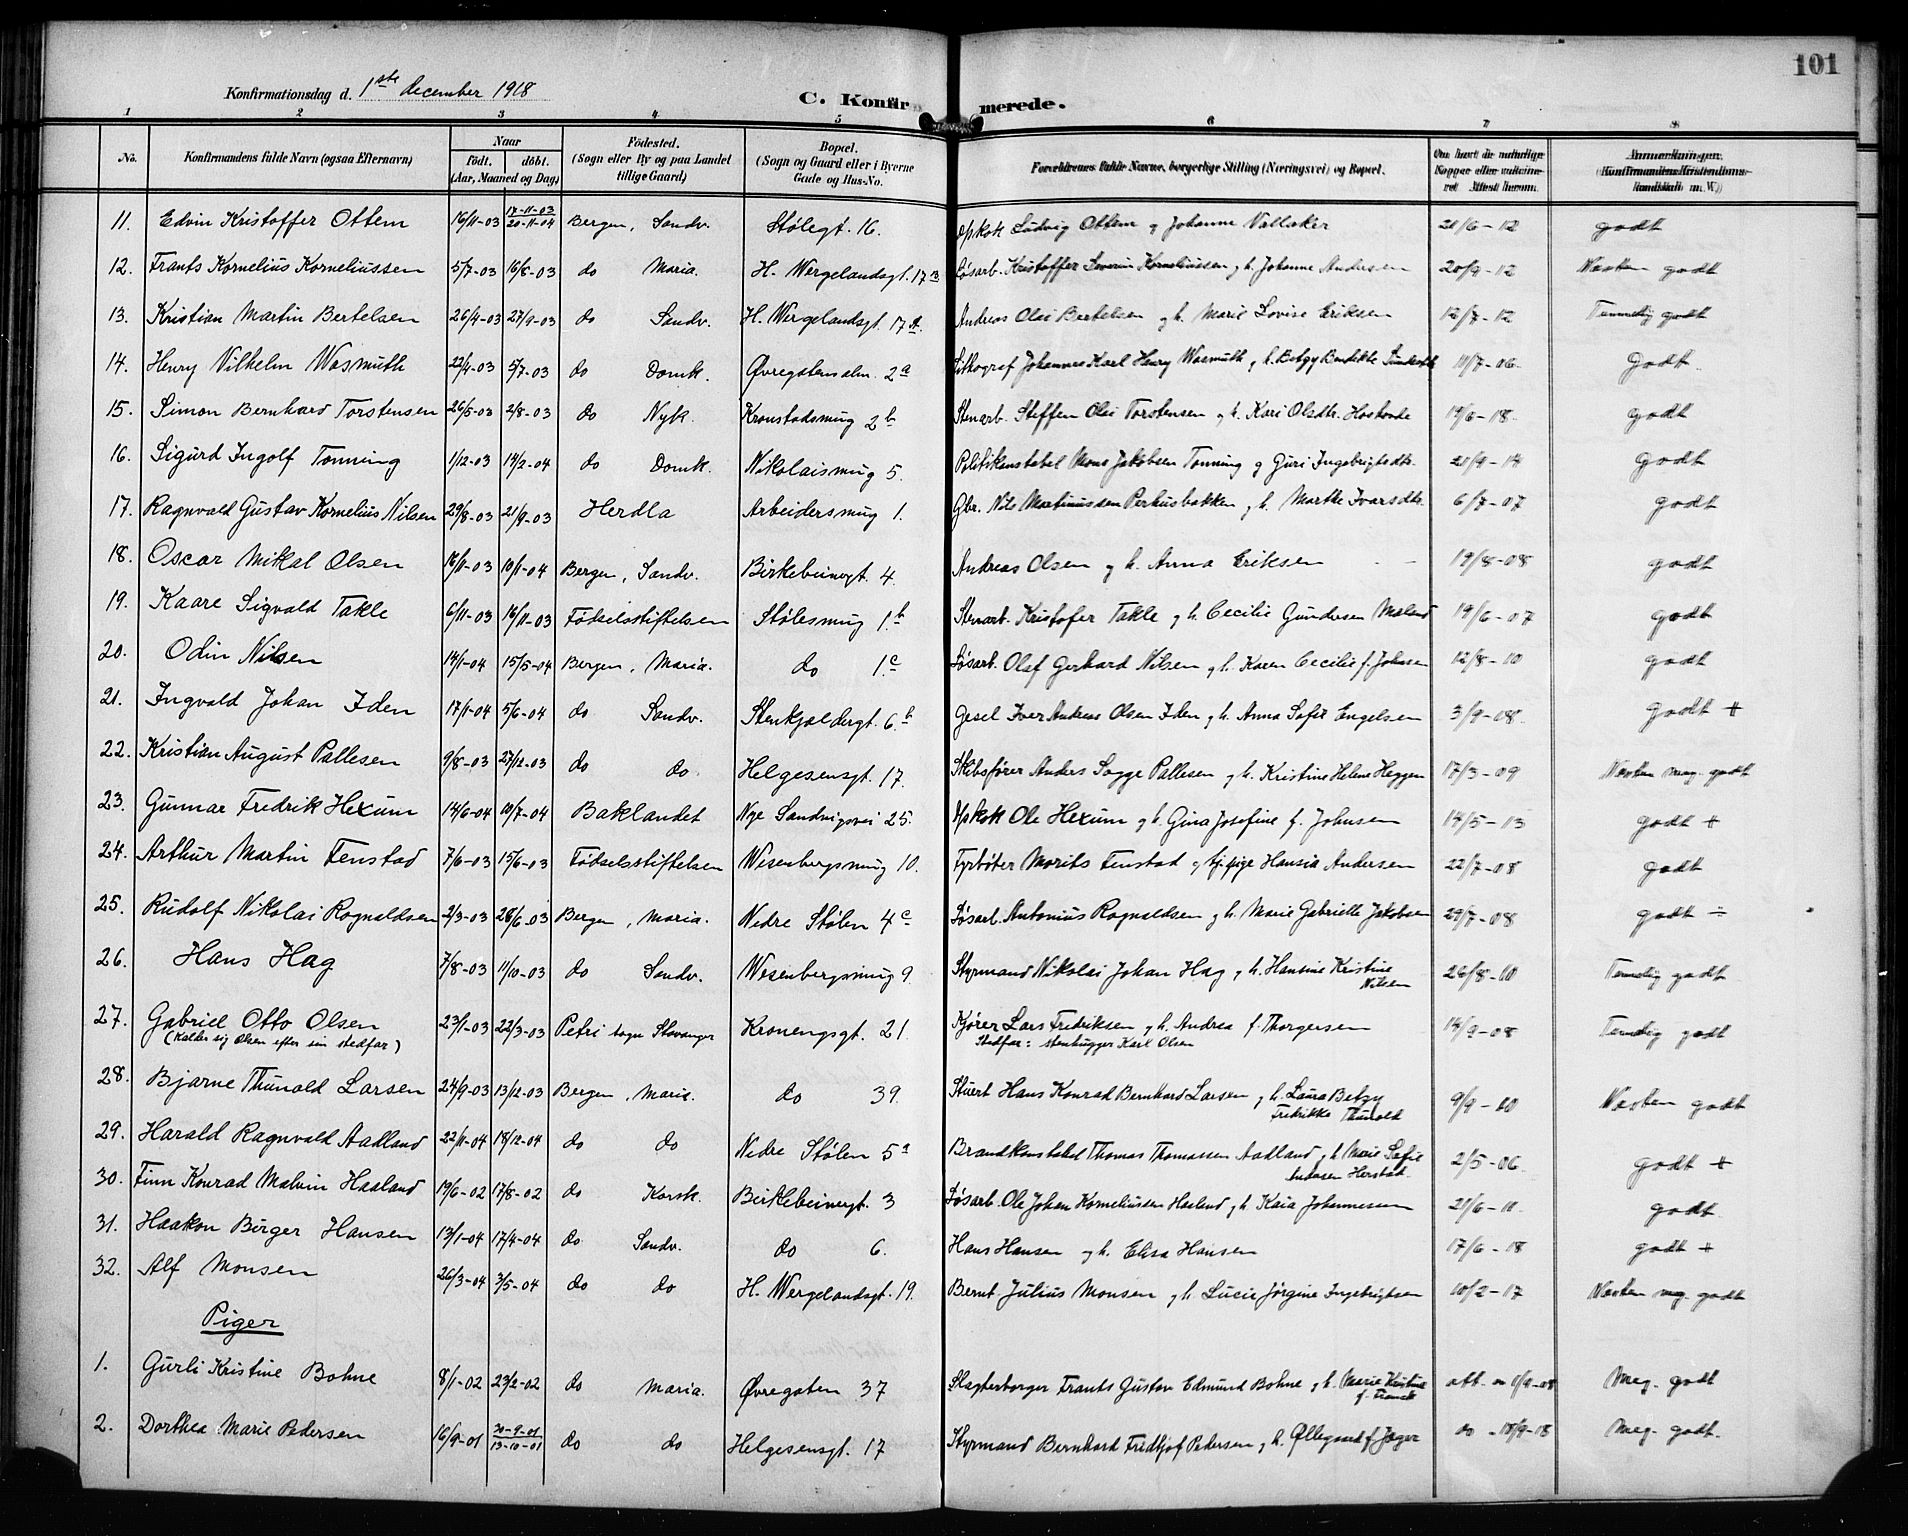 101
Konfirmationsdag d. 1ste december 1918
C. Konfirmerede.
1 2 3 4 5 6 7 8
No. Konfirmandens fulde Navn (ogsaa Efternavn) Naar født. døbt. (Aar, Maaned og Dag) Fødested. (Sogn eller By og paa Landet tillige Gaard) Bopæl. (Sogn og Gaard eller i Byerne Gade og Hus-No. Forældrenes fulde Navne, borgerlige Stilling (Næringsvei) og Bopæl. Om havt de naturlige Kopper eller vaccineret Attest herom. Anmerkninger. (Konfirmandens Kristendomskundskab m. V.)
11. Edvin Kristoffer Ottem 16/11-03 17-11-03 20-11-04 Bergen, Sandv. Stølegt. 16. Opkok Ludvig Ottem g Johanne Vallaker 21/6-12 godt
12. Frants Kornelius Korneliussen 5/7-03 16/8-03 do Maria. H. Wergelandsgt. 17 Løsarb. Kristoffer Severin Korneliussen g h. Johanne Andersen 20/9-12 Næsten godt
13. Kristian Martin Bertelsen 26/4-03 27/9-03 do Sandv. H. Wergelandsgt. 17 a. Andreas Olai Bertelsen g h. Marie Lovise Eriksen 12/7-12 Temmelig godt
14. Henry Vilhelm Wasmuth 22/4-03 5/7-03 do Domk. Øvregatens alm. 2a Litograf Johannes Karl Henry Wasmuth g h. Betzy Bendikte 11/7-06. Godt.
15. Simon Bernhard Torstensen 26/5-03 2/8-03 do Nyk. Kronstadsmug 2b Stenarb. Steffen Olai Torstensen g h. Kari Olsdtr. 19/6-18. godt
16. Sigurd Ingolf Tonning 1/12-03 14/2-04 do Domk. Nikolaismug 5. Politikonstabel Mons Jakobsen Tonning g Guri Ingebrigtsdtr. 21/9-14 godt
17. Ragnvald Gustav Kornelius Nilsen 29/8-03 21/9-03 Herdla Arbeidersmug 1. Gbr. Nils Martinussen Perhusbakken g h. Marthe Ivarsdtr. 6/7-07 godt
18. Oscar Mikal Olsen 16/11-03 10/1-04 Bergen, Sandv. Birkebeinergt. 4. Andreas Olsen g h. Anna Eriksen 19/8-08 godt
19. Kaare Sigvald Takle 6/11-03 16/11-03 Fødselsstiftelsen Stølesmug 1.b Stenarb. Kristofer Takle g h. Cecilie Gundersen 19/6-07 godt
20. Odin Nilsen 14/1-04 15/5-04 Bergen, Maria. do 1.c Løsarb. Olaf Gerhard Nilsen g h. Karen Cecilie f. Johnsen 12/8-10 godt
21. Ingvald Johan Iden 17/1-04 5/6-04 do Sandv. Stenkjeldergt. 6.b Gesel Iver Andreas Olsen Iden g h. Anna Sofie Engelsen 3/9-08. godt +
22. Kristian August Pallesen 9/8-03 27/12-03 do do. Helgesensgt. 17. Skibsfører Anders Sogge Pallesen g h. Kristine Helene Heggen 17/3-09 Næsten meg. godt
23. Gunnar Fredrik Hexum 14/6-04 10/7-04 Baklandet Nye Sandvigsvei 25. Opkok Ole Hexum g h. Gina Josefine f. Johnsen 14/5-13 godt +
24. Arthur Martin Fenstad 7/6-03 15/6-03 Fødselsstiftelsen Wesenbergsmug 10. Fyrbøter Morits Fenstad g tj.pige Hansia Andersen 22/7-08 godt
25. Rudolf Nikolai Rognaldsen 2/3-03 28/6-03 Bergen, Maria. Nedre Stølen 4c Løsarb. Antonius Rognaldsen g h. Marie Gabrielle Jakobsen 29/7-08 godt ÷
26. Hans Hag 7/8-03 11/10-03 do Sandv. Wesenbergsmug 9. Styrmand Nikolai Johan Hag g h. Hansine Kristine Nilsen 26/8-10 Temelig godt
27. Gabriel Otto Olsen 23/1-03 22/3-03 Petri sogn Stavanger Kronengsgt. 21. Kjører Lars Fredriksen g h. Andrea f. Thorgersen 14/9-08 Temelig godt
(kalder sig Olsen efter sin stedfar) Stedfar: stenhugger Karl Olsen
28. Bjarne Thunold Larsen 24/9-03 13/12-03 Bergen, Marie. do 39. Stuert Hans Konrad Bernhard Larsen g h. Laura Betzy Fredrikke Thunold 9/9-10 Næsten godt
29. Harald Ragnvald Aadland 22/11-04 18/12-04 do do Nedre Stølen 5a Brandkonstabel Thomas Thomassen Aadland g h. Marie Sofie Andersen Herstad. 2/5-06. godt +
30. Finn Konrad Malvin Haaland 19/6-02 17/8-02 do Korsk. Birkebeinergt. 3 Løsarb. Ole Johan Korneliussen Haaland g h. Kaia Johannessen 21/6-11. godt.
31. Haakon Birger Hansen 13/1-04 17/4-04 do Sandv. do 6. Hans Hansen g h. Elisa Hansen 17/6-18 godt +
32. Alf Monsen 26/3-04 3/5-04 do do H. Wergelandsgt. 19. Bernt Julius Monsen g h. Lucie Jørgine Ingebrigtsen 10/2-17 Næsten meg. godt
Piger
1. Gurli Kristine Bohne 8/1-02 23/2-02 do Maria. Øvregaten 37 Slagterborger Frants Gustav Edmund Bohne g h. Marie Kristine f. att. 1/9-08 Meg. godt
2. Dorthea Marie Pedersen 16/9-01 30-9-01 13-10-01 do do Helgesensgt. 17 Styrmand Bernhard Fredtjof Pedersen g h. Øllegaard f. Jæger do - 18/9-18 Meg. godt.